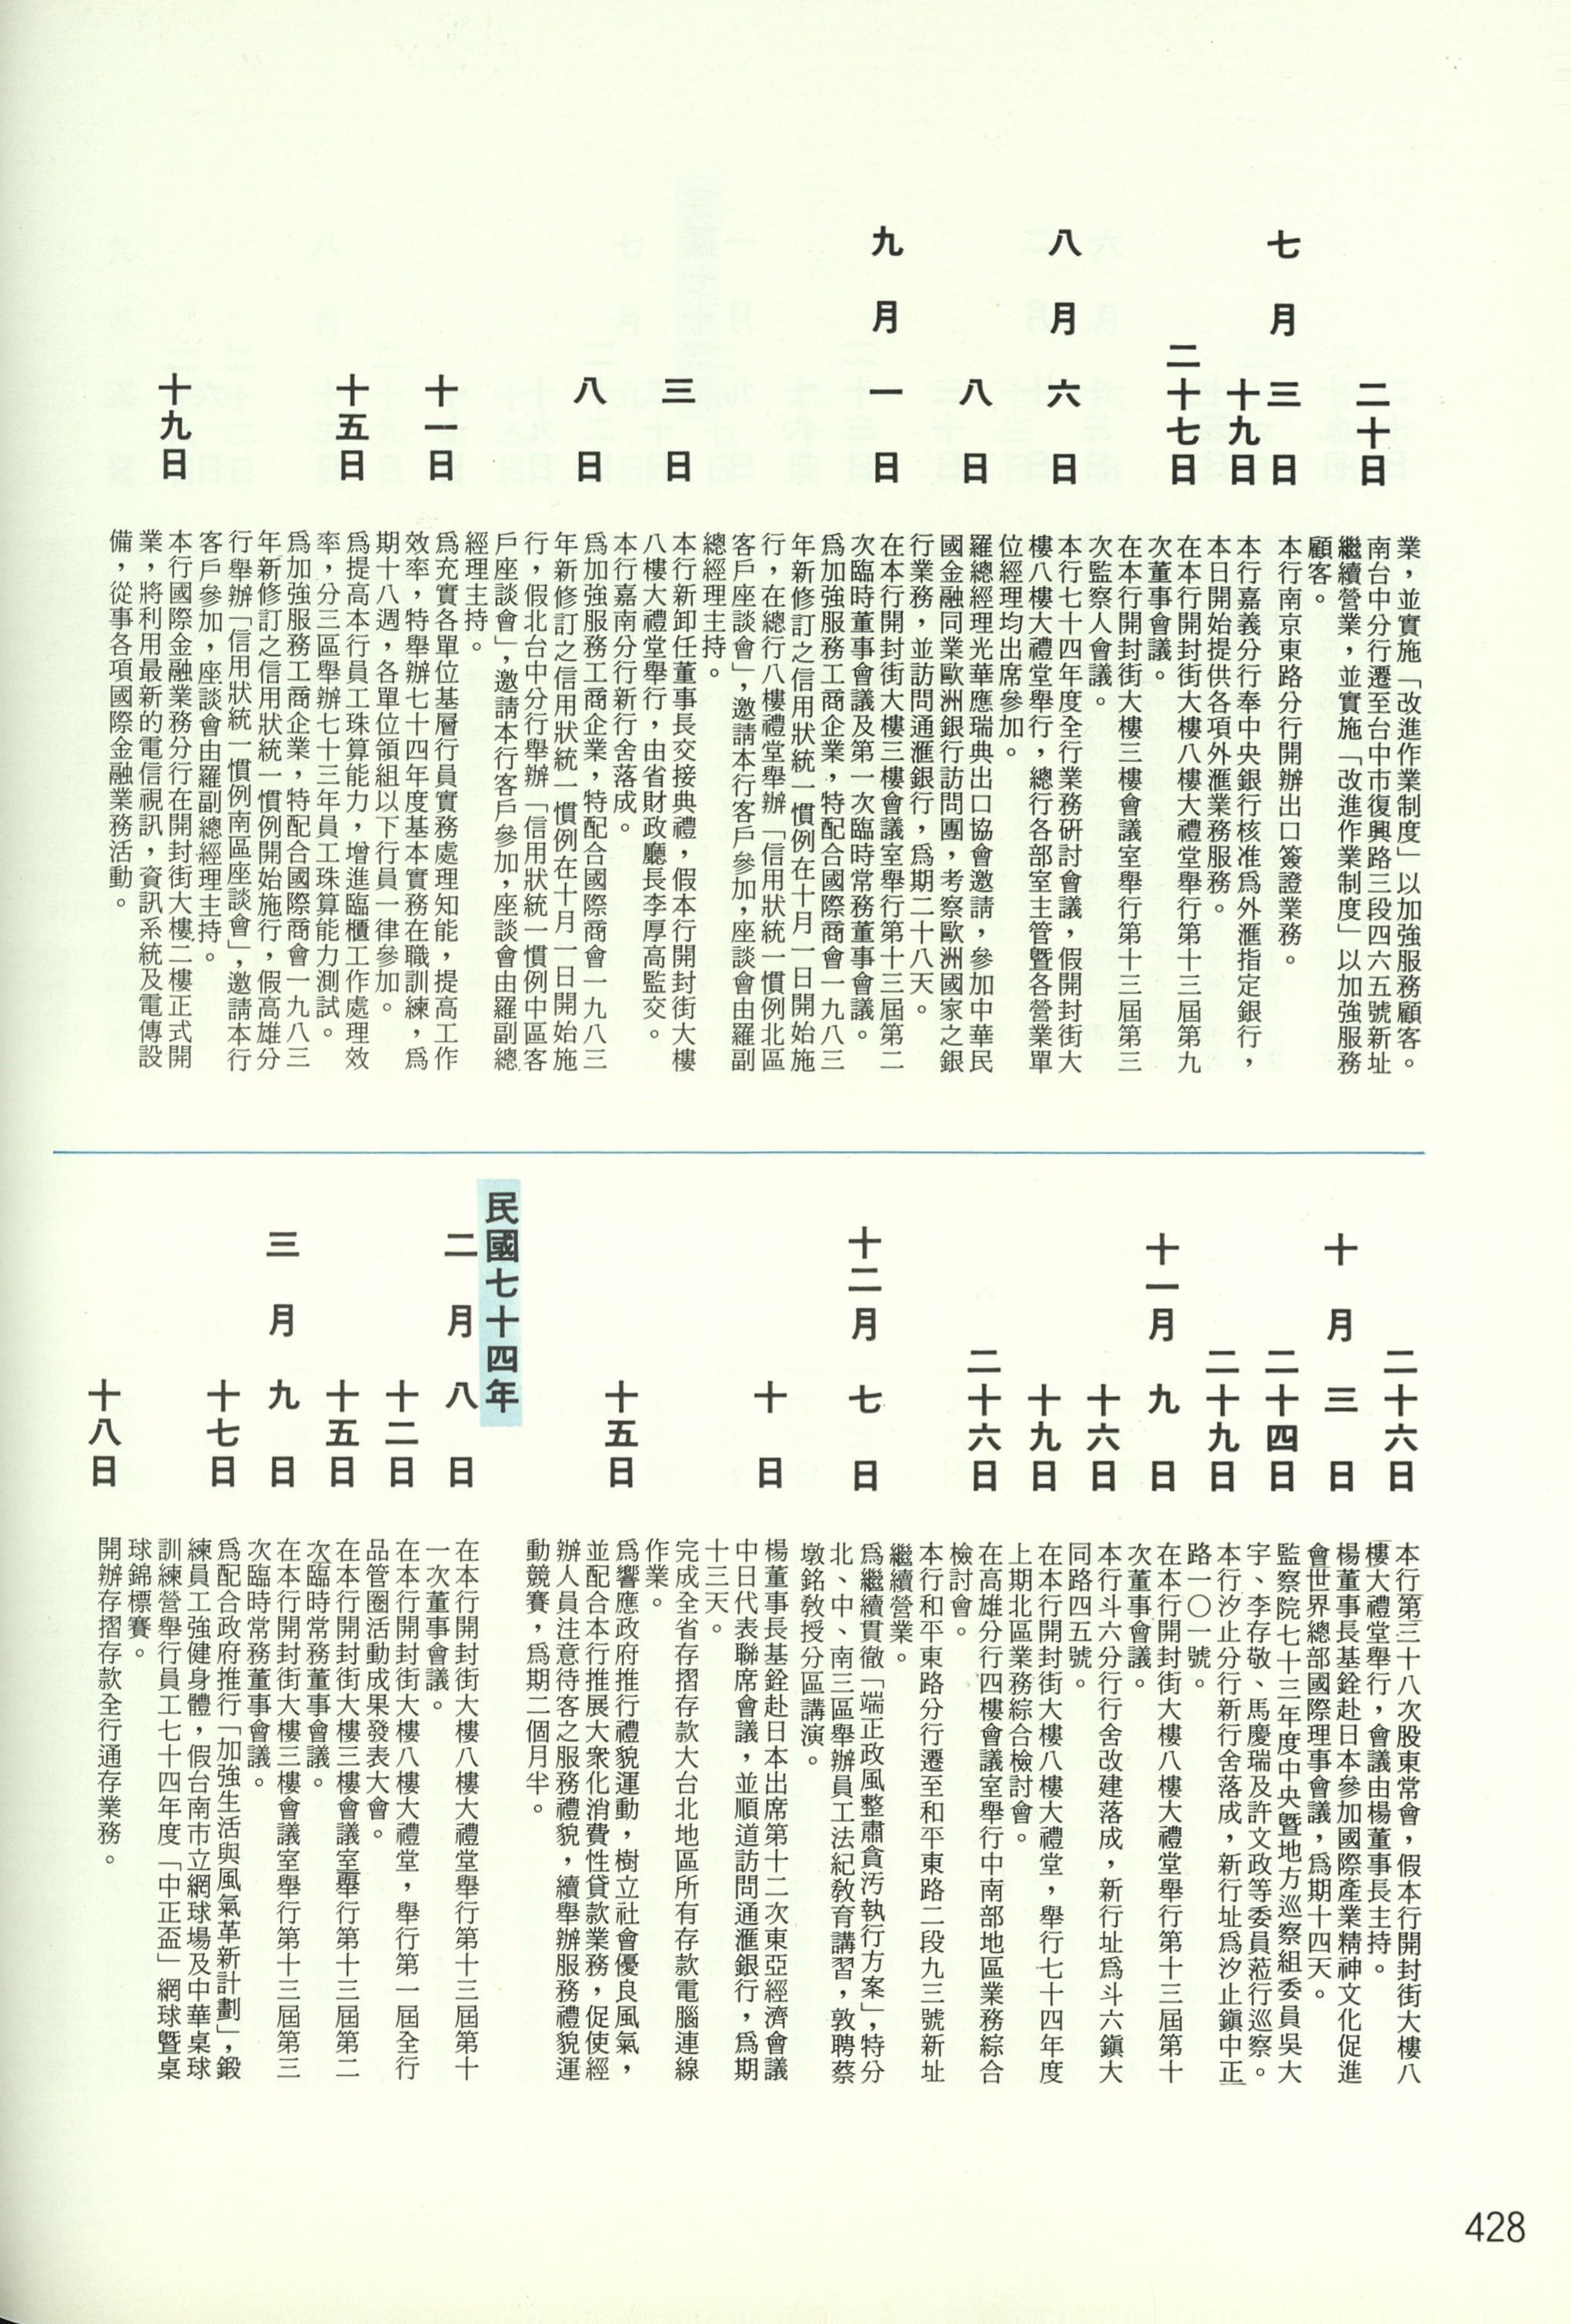 業，並實施「改進作業制度」以加強服務顧客。
二十日
南台中分行遷至台中市復興路三段四六五號新址
繼續營業，並實施「改進作業制度」以加強服務
顧客。
七月三日
本行南京東路分行開辦出口簽證業務。
十九日
本行嘉義分行奉中央銀行核准爲外滙指定銀行，
本日開始提供各項外滙業務服務。
二十七日
在本行開封街大樓八樓大禮堂舉行第十三屆第九
次董事會議。
在本行開封街大樓三樓會議室舉行第十三屆第三
次監察人會議。
八月六日
本行七十四年度全行業務研討會議，假開封街大
樓八樓大禮堂舉行，總行各部室主管暨各營業單
位經理均出席參加。
八日
羅總經理光華應瑞典出口協會邀請，參加中華民
國金融同業歐洲銀行訪問團，考察歐洲國家之銀
行業務，並訪問通滙銀行，爲期二十八天。
九月一日
在本行開封街大樓三樓會議室舉行第十三屆第二
次臨時董事會議及第一次臨時常務董事會議。
爲加強服務工商企業，特配合國際商會一九八三
年新修訂之信用狀統一慣例在十月一日開始施
行，在總行八樓禮堂舉辦「信用狀統一慣例北區
客戶座談會」，邀請本行客戶參加，座談會由羅副
總經理主持。
三日
本行新卸任董事長交接典禮，假本行開封街大樓
八樓大禮堂舉行，由省財政廳長李厚高監交。
本行嘉南分行新行舍落成。
八日
爲加強服務工商企業，特配合國際商會一九八三
年新修訂之信用狀統一慣例在十月一日開始施
行，假北台中分行舉辦「信用狀統一慣例中區客
戶座談會」，邀請本行客戶參加，座談會由羅副總
經理主持。
十一日
爲充實各單位基層行員實務處理知能，提高工作
效率，特舉辦七十四年度基本實務在職訓練，爲
期十八週，各單位領組以下行員一律參加。
十五日
爲提高本行員工珠算能力，增進臨櫃工作處理效
率，分三區舉辦七十三年員工珠算能力測試。
爲加強服務工商企業，特配合國際商會一九八三
年新修訂之信用狀統一慣例開始施行，假高雄分
行舉辦「信用狀統一慣例南區座談會」，邀請本行
客戶參加，座談會由羅副總經理主持。
十九日
本行國際金融業務分行在開封街大樓二樓正式開
業，將利用最新的電信視訊，資訊系統及電傳設
備，從事各項國際金融業務活動。
二十六日
本行第三十八次股東常會，假本行開封街大樓八
樓大禮堂舉行，會議由楊董事長主持。
十月三日
楊董事長基銓赴日本參加國際產業精神文化促進
會世界總部國際理事會議，爲期十四天。
二十四日
監察院七十三年度中央暨地方巡察組委員吳大
宇、李存敬、馬慶瑞及許文政等委員蒞行巡察。
二十九日
本行汐止分行新行舍落成，新行址爲汐止鎭中正
路一〇一號。
十一月九日
在本行開封街大樓八樓大禮堂舉行第十三屆第十
次董事會議。
十六日
本行斗六分行行舍改建落成，新行址爲斗六鎭大
同路四五號。
十九日
在本行開封街大樓八樓大禮堂，舉行七十四年度
上期北區業務綜合檢討會。
二十六日
在高雄分行四樓會議室舉行中南部地區業務綜合
檢討會。
本行和平東路分行遷至和平東路二段九三號新址
繼續營業。
十二月七日
爲繼續貫徹「端正政風整肅貪汚執行方案」，特分
北、中、南三區舉辦員工法紀敎育講習，敦聘蔡
墩銘敎授分區講演。
十日
楊董事長基銓赴日本出席第十二次東亞經濟會議
中日代表聯席會議，並順道訪問通滙銀行，爲期
十三天。
完成全省存摺存款大台北地區所有存款電腦連線
作業。
十五日
爲響應政府推行禮貌運動，樹立社會優良風氣，
並配合本行推展大衆化消費性貸款業務，促使經
辦人員注意待客之服務禮貌，續舉辦服務禮貌運
動競賽，爲期二個月半。
民國七十四年
二月八日
在本行開封街大樓八樓大禮堂舉行第十三屆第十
一次董事會議。
十二日
在本行開封街大樓八樓大禮堂，舉行第一屆全行
品管圈活動成果發表大會。
十五日
在本行開封街大樓三樓會議室舉行第十三屆第二
次臨時常務董事會議。
三月九日
在本行開封街大樓三樓會議室舉行第十三屆第三
次臨時常務董事會議。
十七日
爲配合政府推行「加強生活與風氣革新計劃」，鍛
練員工強健身體，假台南市立網球場及中華桌球
訓練營舉行員工七十四年度「中正盃」網球暨桌
球錦標賽。
十八日
開辦存摺存款全行通存業務。
428